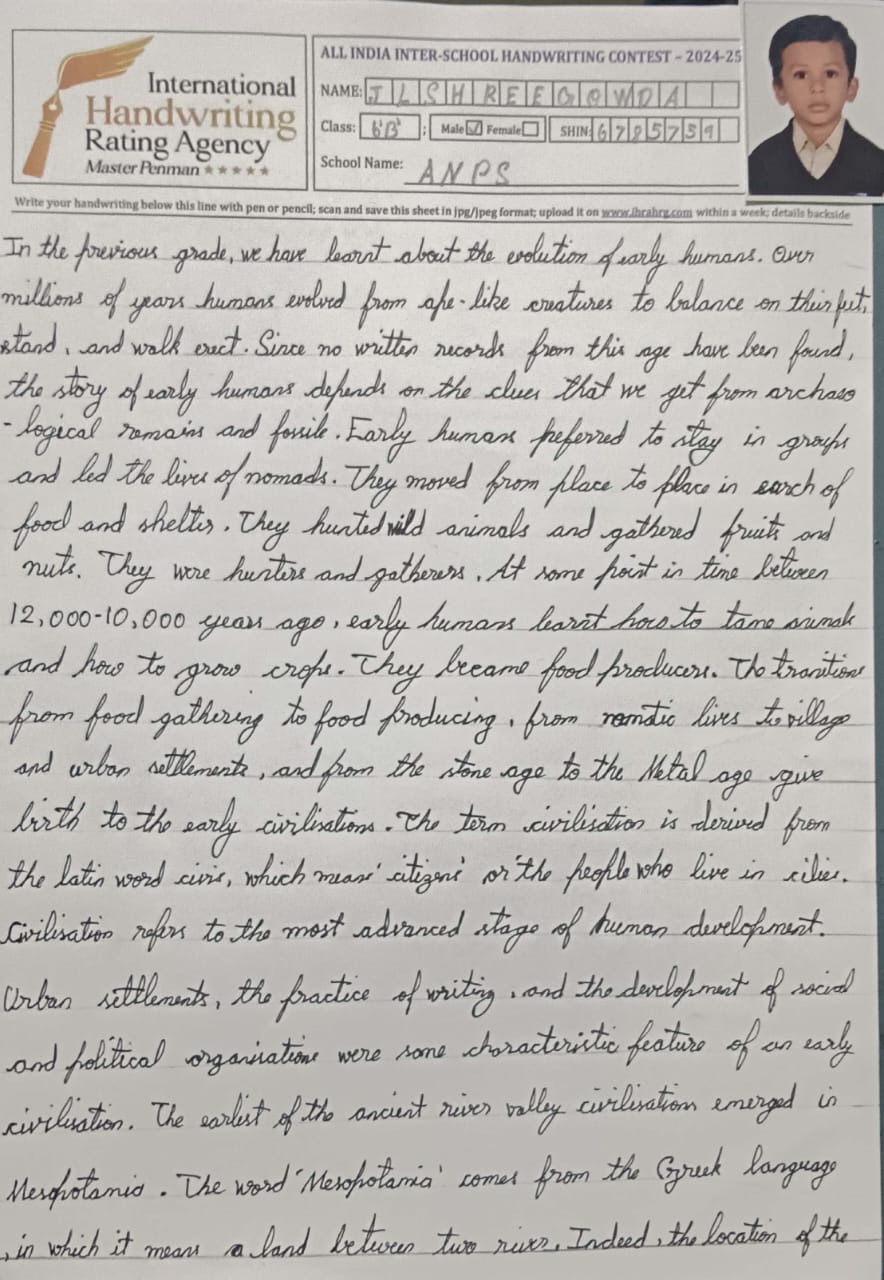 International
Handwriting
Rating Agency
Master Penman ★★★★★
ALL INDIA INTER-SCHOOL HANDWRITING CONTEST – 2024-25
NAME: J L SHREEGOWDA
Class: 6'B' ; Male ☑ Female ☐ SHIN: 6785759
School Name: ANPS
Write your handwriting below this line with pen or pencil; scan and save this sheet in jpg/jpeg format; upload it on www.ihrahrg.com within a week; details backside
In the previous grade, we have learnt about the evolution of early humans. Over
millions of years humans evolved from ape-like creatures to balance on their feet,
stand, and walk erect. Since no written records from this age have been found,
the story of early humans depends on the clues that we get from archaeo
-logical remains and fossils. Early humans preferred to stay in groups
and led the lives of nomads. They moved from place to place in search of
food and shelter. They hunted wild animals and gathered fruits and
nuts. They were hunters and gatherers. At some point in time between
12,000-10,000 years ago, early humans learnt how to tame animals
and how to grow crops. They became food producers. The transitions
from food gathering to food producing, from nomadic lives to village
and urban settlements, and from the stone age to the Metal age give
birth to the early civilisations. The term civilisation is derived from
the latin word civis, which means 'citizens' or 'the people who live in cities.
Civilisation refers to the most advanced stage of human development.
Urban settlements, the practice of writing, and the development of social
and political organisations were some characteristic feature of an early
civilisation. The earliest of the ancient river valley civilisations emerged in
Mesopotamia. The word 'Mesopotamia' comes from the Greek language
, in which it means a land between two rivers. Indeed, the location of the